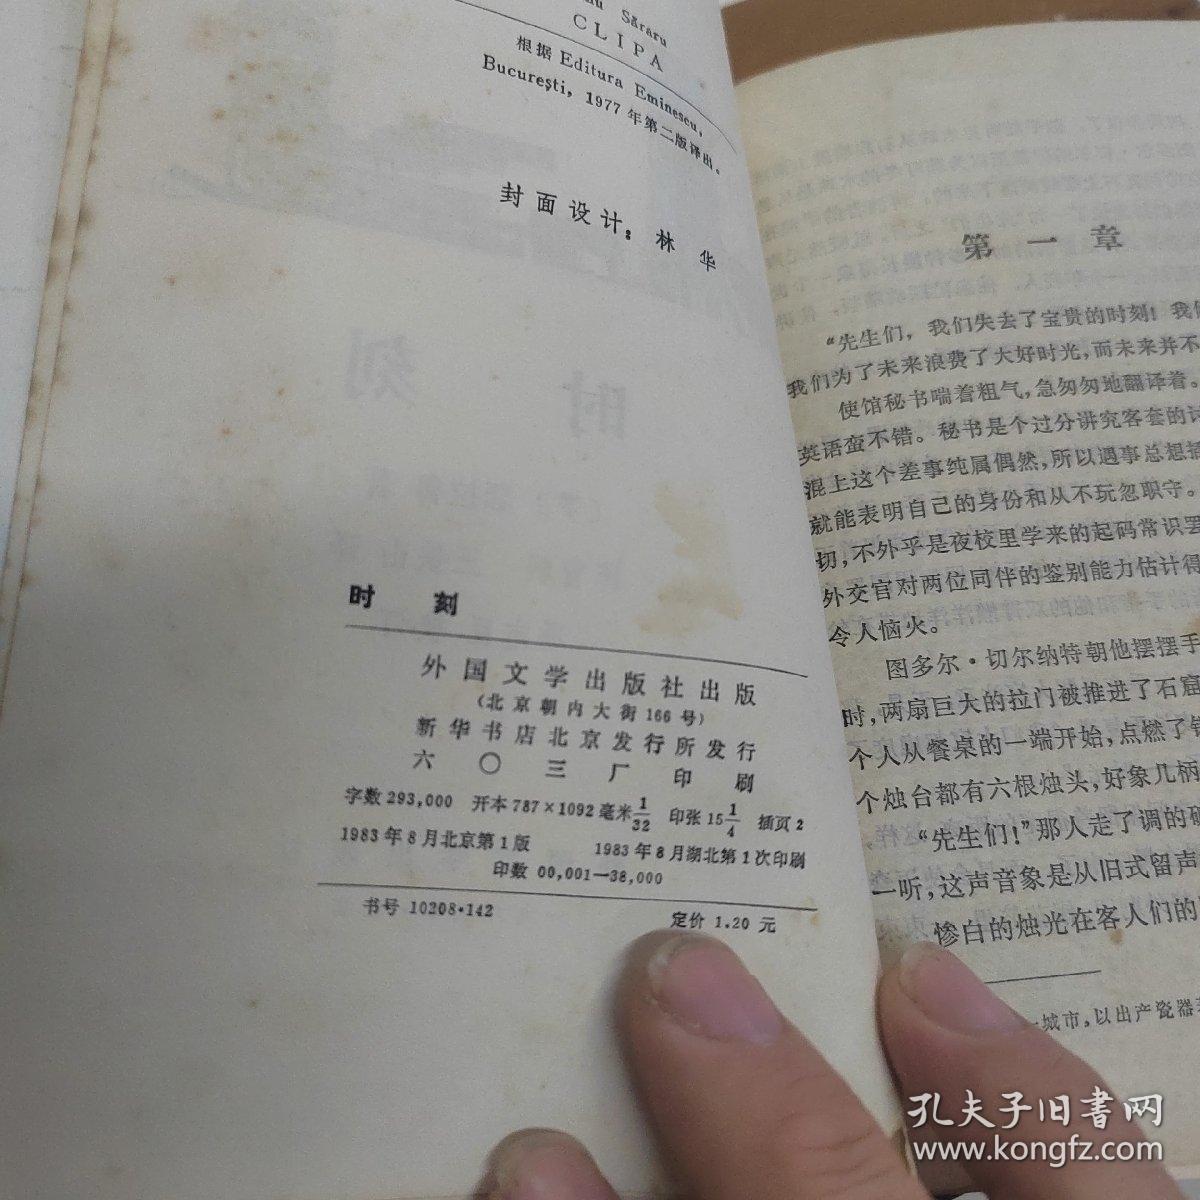 Săraru
CLIPA
根据 Editura Eminescu,
Bucureşti, 1977 年第二版译出。
封面设计：林 华
时 刻
外国文学出版社出版
（北京朝内大街166号）
新华书店北京发行所发行
六〇三厂印刷
字数 293,000 开本 787×1092 毫米 1/32 印张 15 1/4 插页 2
1983 年 8 月北京第 1 版 1983 年 8 月湖北第 1 次印刷
印数 00,001—38,000
书号 10208·142 定价 1.20 元
第 一 章
“先生们，我们失去了宝贵的时刻！我们
我们为了未来浪费了大好时光，而未来并不
使馆秘书喘着粗气，急匆匆地翻译着。
英语蛮不错。秘书是个过分讲究客套的
混上这个差事纯属偶然，所以遇事总想
就能表明自己的身份和从不玩忽职守。
切，不外乎是夜校里学来的起码常识
外交官对两位同伴的鉴别能力估计得
令人恼火。
图多尔·切尔纳特朝他摆摆手
时，两扇巨大的拉门被推进了石窟
个人从餐桌的一端开始，点燃了
个烛台都有六根烛头，好象几柄
“先生们！”那人走了调的
一听，这声音象是从旧式留声
惨白的烛光在客人们的
城市，以出产瓷器
孔夫子旧书网
www.kongfz.com